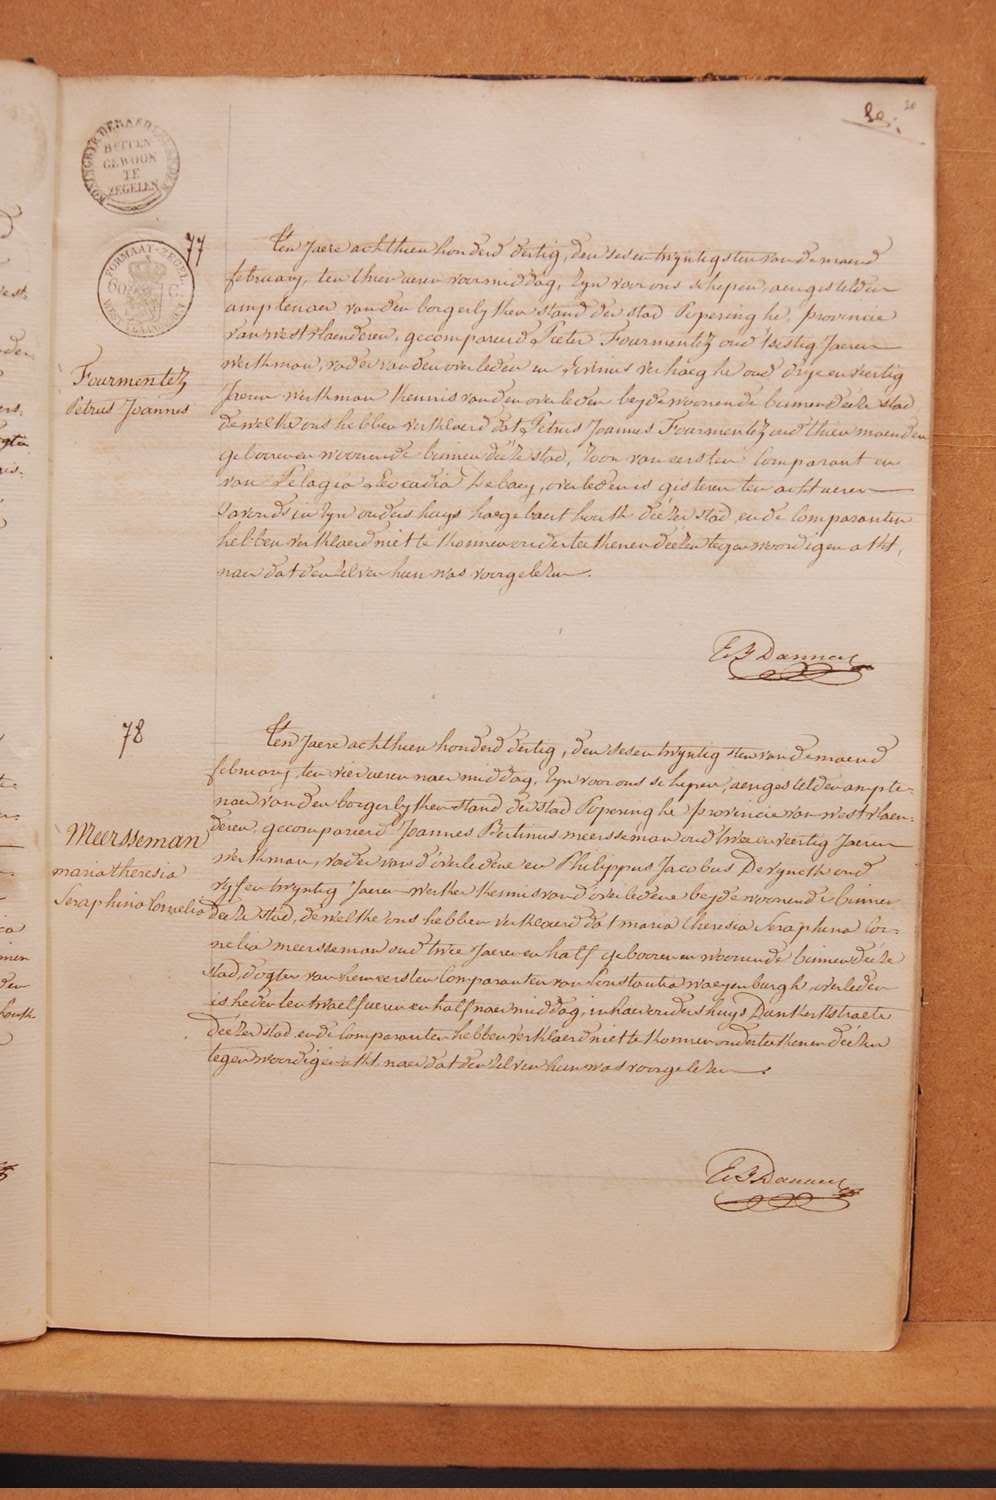 20.
20
KONINGRYK DER NEDERLANDEN
BUITEN
GEWOON
TE
ZEGELEN
FORMAAT-ZEGEL
77
Fourmentez
Petrus Joannes
Ten Jaere achthien honderd dertig, den sesentwyntigsten van de maend
february, ten thien ueren voormiddag, Zyn voor ons schepen, aengestelden
amptenaer van den borgerlyken stand der stad Poperinghe, provincie
van westvlaenderen, gecompareerd Pieter Fourmentez oud sestig Jaeren
werkman, vader van den overleden en verhaeghe oud drye en veertig
Jaeren werkman kennis van den overleden beyde woonende binnen deeze stad
dewelke ons hebben verklaerd dat Petrus Joannes Fourmentez oud thien maenden
gebooren en woonende binnen deeze stad, zoon van eersten Comparant en
van Pelagia Leocadia Debaey, overleden is gisteren ten acht ueren
s'avonds in zyn ouders huys deezer stad, en de Comparanten
hebben verklaerd niet te konnen onderteekenen deezen tegenwoordigen akt,
naer dat den zelven hun was voorgelezen.
E J Danneel
78
Meersseman
maria theresia
Seraphina Cornelia
Ten Jaere achthien honderd dertig, den sesentwyntigsten van de maend
february, ten vier ueren naermiddag, Zyn voor ons schepen, aengestelden ampte-
naer van den borgerlyken stand der stad Poperinghe provincie van westvlaen-
deren, gecompareerd Joannes Bertinus meersseman oud twee en veertig Jaeren
werkman, vader van d'overledene en Philippus Jacobus Deryncth oud
vyfentwyntig Jaeren werker kennis van d'overledene beyde woonende binnen
deeze stad, dewelke ons hebben verklaerd dat maria theresia Seraphina Cor-
nelia meersseman oud twee Jaeren en half gebooren en woonende binnen deeze
stad, dogter van hem eersten Comparant en van Constantia waeyenburgh, overleden
is heden ten twaelf ueren en half naermiddag, in haer ouders huys Dunkerkstraete
deezer stad en de Comparanten hebben verklaerd niet te konnen onderteekenen deezen
tegenwoordigen akt naer dat den zelven hun was voorgelezen.
E J Danneel